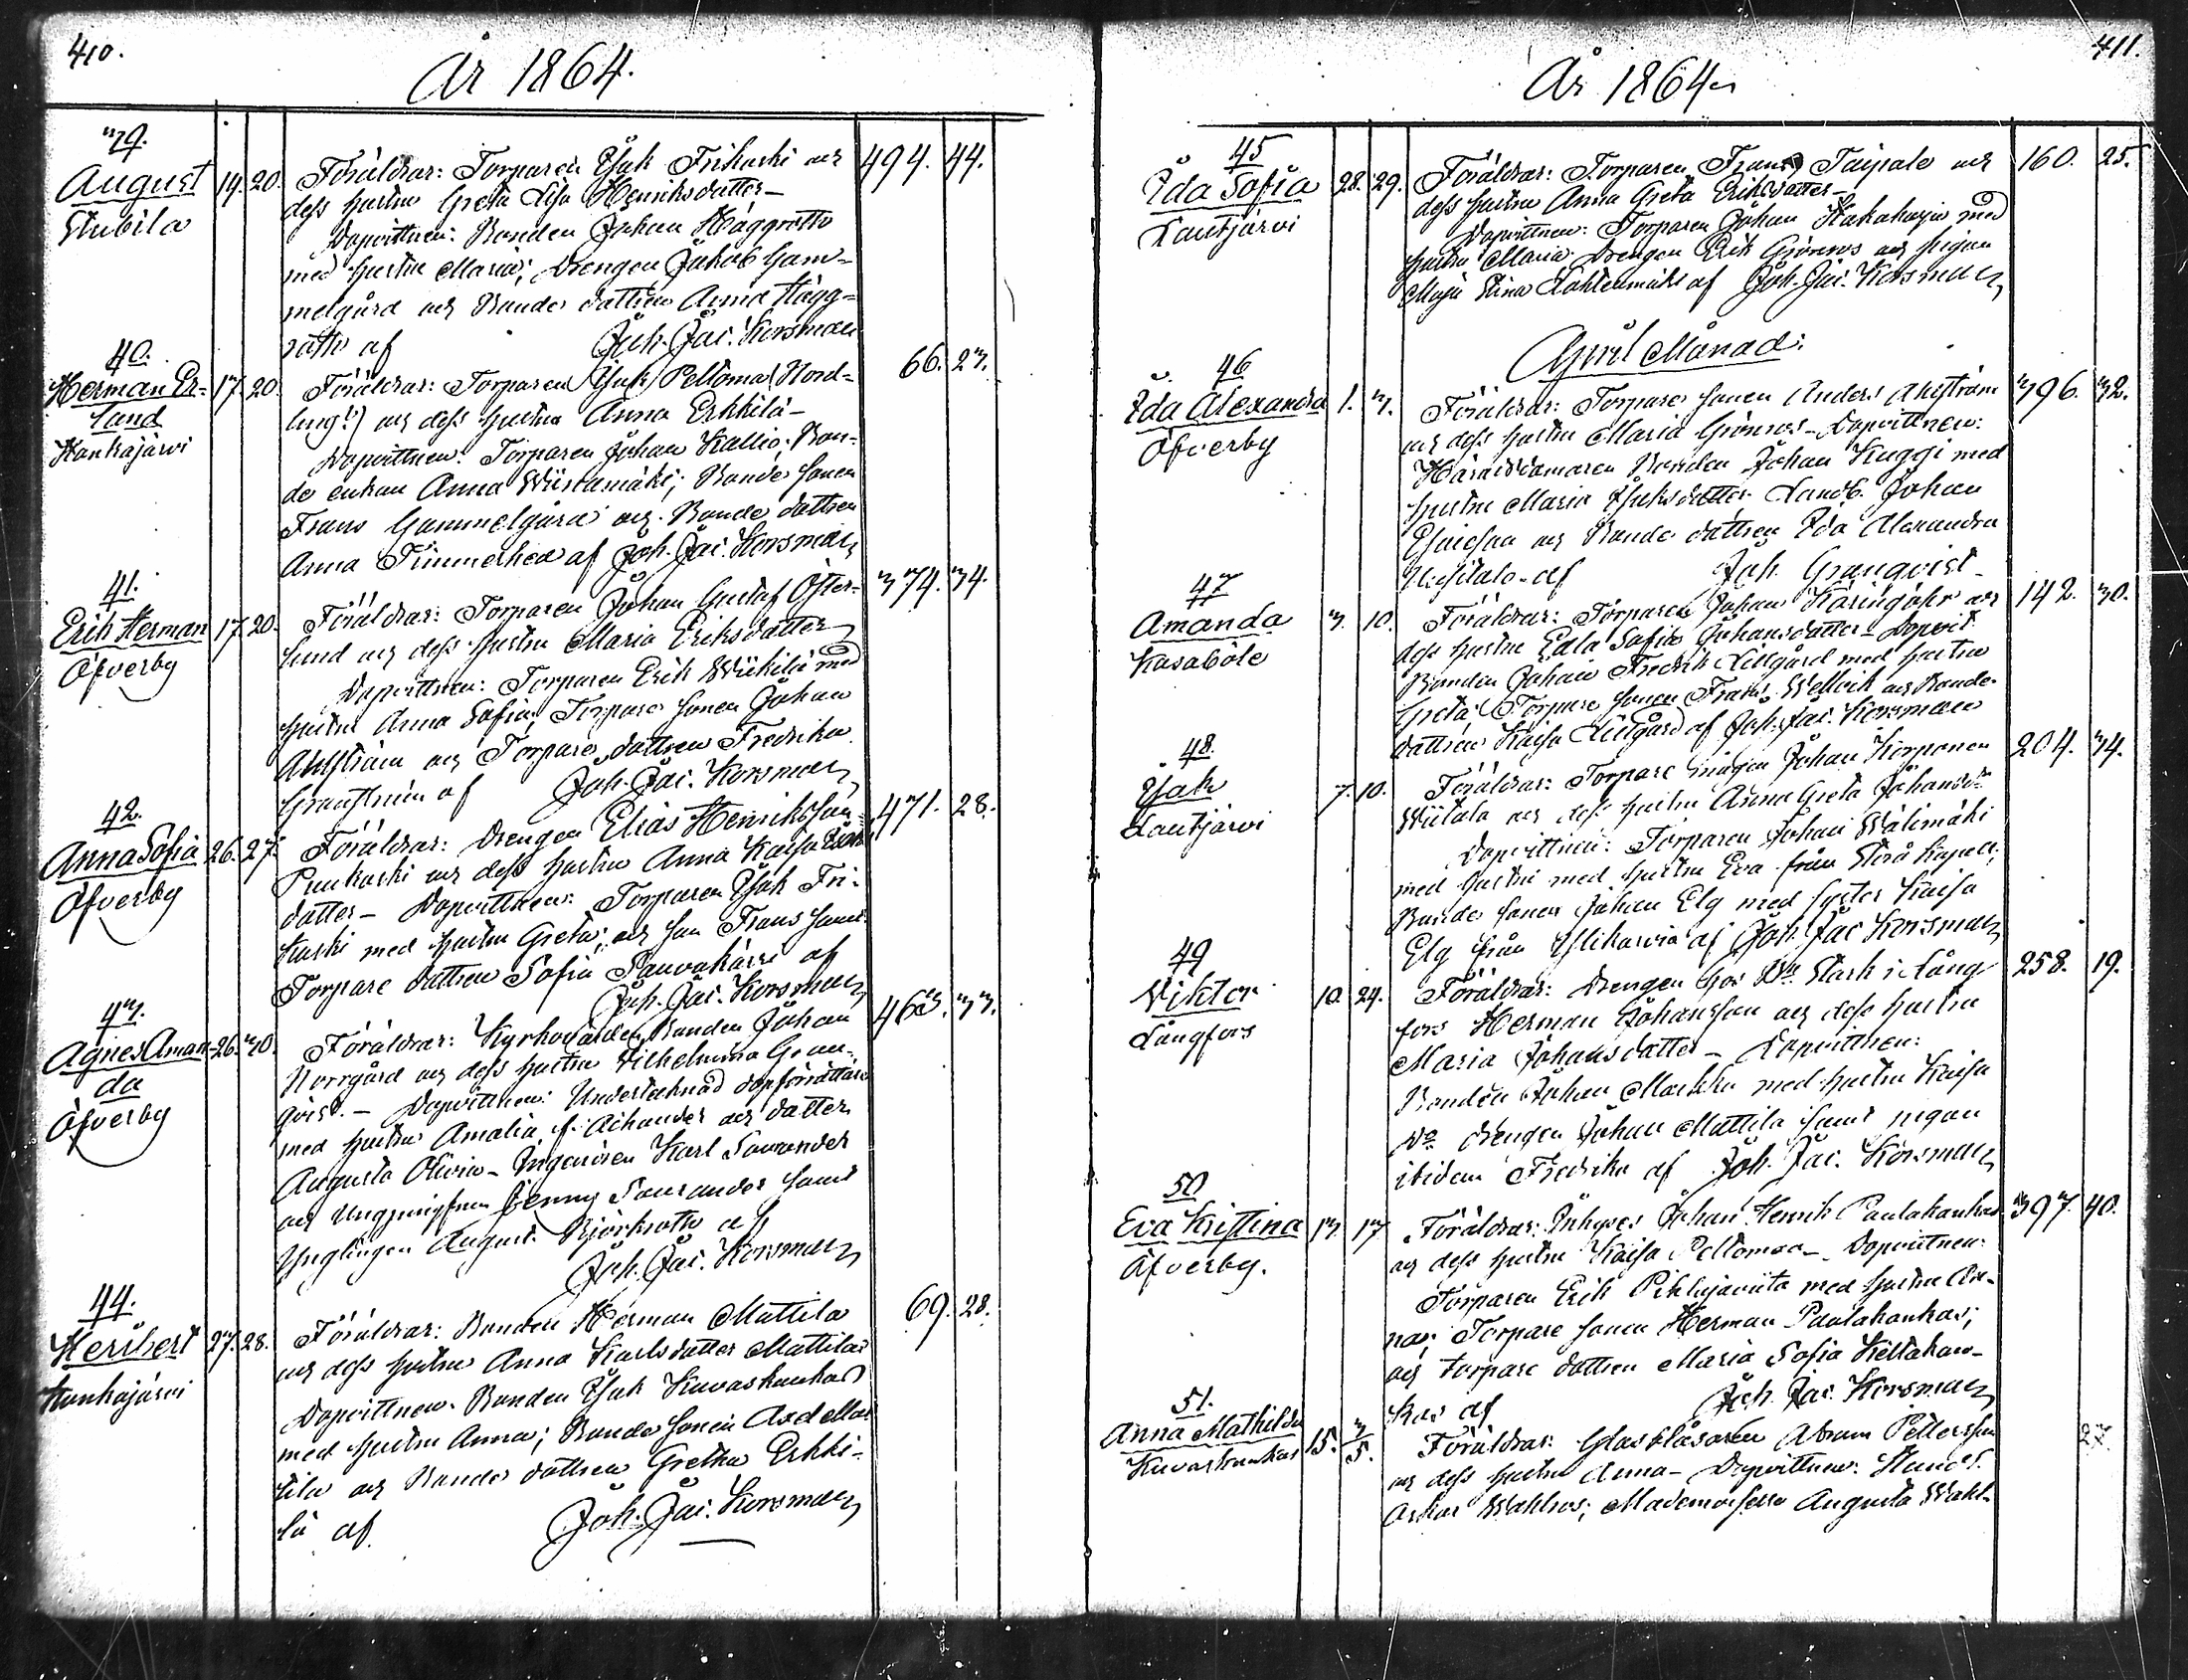 410.
År 1864.
39.
August 19. 20.
Stubila
Föräldrar: Torparen Isak Frikaski och 494. 44.
dess hustru Greta Lisa Henriksdotter –
Dopvittnen: Bonden Johan Häggroth
med hustru Maria; Drengen Jakob Gam-
melgård och Bonde dottren Anna Hägg-
roth af Joh. Jac. Korsman
40.
Herman Er- 17. 20.
land
Kankajärvi
Föräldrar: Torparen Isak Peltoma (Nord- 66. 23.
ling?) och dess hustru Anna Erkkilä –
Dopvittnen: Torparen Johan Kallio; Bon-
de enkan Anna Wiinamäki; Bonde sonen
Frans Gammelgård och Bonde dottren
Anna Timmerhed af Joh. Jac. Korsman
41.
Erik Herman 17. 20.
Öfverby
Föräldrar: Torparen Johan Gustaf Öster- 374. 34.
lund och dess hustru Maria Eriksdotter
Dopvittnen: Torparen Erik Wiikilä med
hustru Anna Sofia; Torpare sonen Johan
Ahlström och Torpare dottren Fredrika
af Joh. Jac. Korsman
42.
Anna Sofia 26. 27.
Öfverby
Föräldrar: Drengen Elias Henriksson 471. 28.
Punkaski och dess hustru Anna Kaisa
dotter – Dopvittnen: Torparen Isak Fri-
kaski med hustru Greta; och son Frans samt
Torpare dottren Sofia af
Joh. Jac. Korsman
43.
Agnes Aman- 26. 30.
da
Öfverby
Föräldrar: Kyrkovärden Bonden Johan 463. 33.
Norrgård och dess hustru Vilhelmina Gran-
qvist. – Dopvittnen: Undertecknad dopförrättare
med hustru Amalia, f. Aihander och dotter
Augusta Olivia – Ingeniören Karl Saurander
och Ungpigan Jenny Saurander samt
Ynglingen August Björkroth af
Joh. Jac. Korsman
44.
Heribert 27. 28.
Kankajärvi
Föräldrar: Bonden Herman Mattila 69. 28.
och dess hustru Anna Karlsdotter Mattila
Dopvittnen: Bonden Isak Kuvaskankas
med hustru Anna; Bonde sonen Axel Mat-
tila och Bonde dottren Gretha Erkki-
lä af Joh. Jac. Korsman
411.
År 1864
45
Ida Sofia 28. 29.
Lautjärvi
Föräldrar: Torparen Frans Taipale och 160. 25.
dess hustru Anna Greta Eriksdotter –
Dopvittnen: Torparen Johan Kakaharju med
hustru Maria Drengen Erik Grönros och pigan
Maja Stina Lähtenmäki af Joh. Jac. Korsman
April Månad:
46
Ida Alexandra 1. 3.
Öfverby
Föräldrar: Torpare sonen Anders Ahlström 396. 32.
och dess hustru Maria Grönros – Dopvittnen:
Häradsdomaren Bonden Johan Kuggi med
hustru Maria Isaksdotter Landb. Johan
Esaiesson och Bonde dottren Ida Alexandra
Uusitalo – af Joh. Granqvist
47
Amanda 3. 10.
Kasaböle
Föräldrar: Torparen Johan Käringåhr och 142. 30.
dess hustru Edla Sofia Johansdotter – Dopvit.
Bonden Johan Fredrik Lillgård med hustru
Greta; Torpare sonen Frans Wellvik och Bonde-
dottren Kaisa Lillgård af Joh. Jac. Korsman
48.
Isak 7. 10.
Lautjärvi
Föräldrar: Torpare mågen Johan Korponen 204. 34.
Wiitala och dess hustru Anna Greta Johansd:r
Dopvittnen: Torparen Johan Wälimäki
med hustru med hustru Eva från Storå Kapell;
Bonde sonen Johan Elg med syster Kaisa
Elg från af Joh. Jac. Korsman
49
Viktor 10. 24.
Långfors
Föräldrar: Drengen hos Stark i Lång- 258. 19.
fors Herman Johansson och dess hustru
Maria Johansdotter – Dopvittnen:
Bonden Johan Markku med hustru Kaisa
drengen Johan Mattila samt pigan
ibidem Fredrika af Joh. Jac. Korsman
50
Eva Kristina 13. 17
Öfverby.
Föräldrar: Inhyses Johan Henrik Paulakankas 397. 40.
och dess hustru Kaisa Peltomaa – Dopvittnen:
Torparen Erik Pihlajaviita med hustru An-
na; Torpare sonen Herman Paulakankas;
och torpare dottren Maria Sofia Kiettakan-
kas af Joh. Jac. Korsman
51.
Anna Mathilda 15. 3/5.
Kuvaskankas
Föräldrar: Glasblåsaren Abram Petterson 27.
och dess hustru Anna – Dopvittnen: Handl.
Oskar Wahlros; Mademoiselle Augusta Wahl-